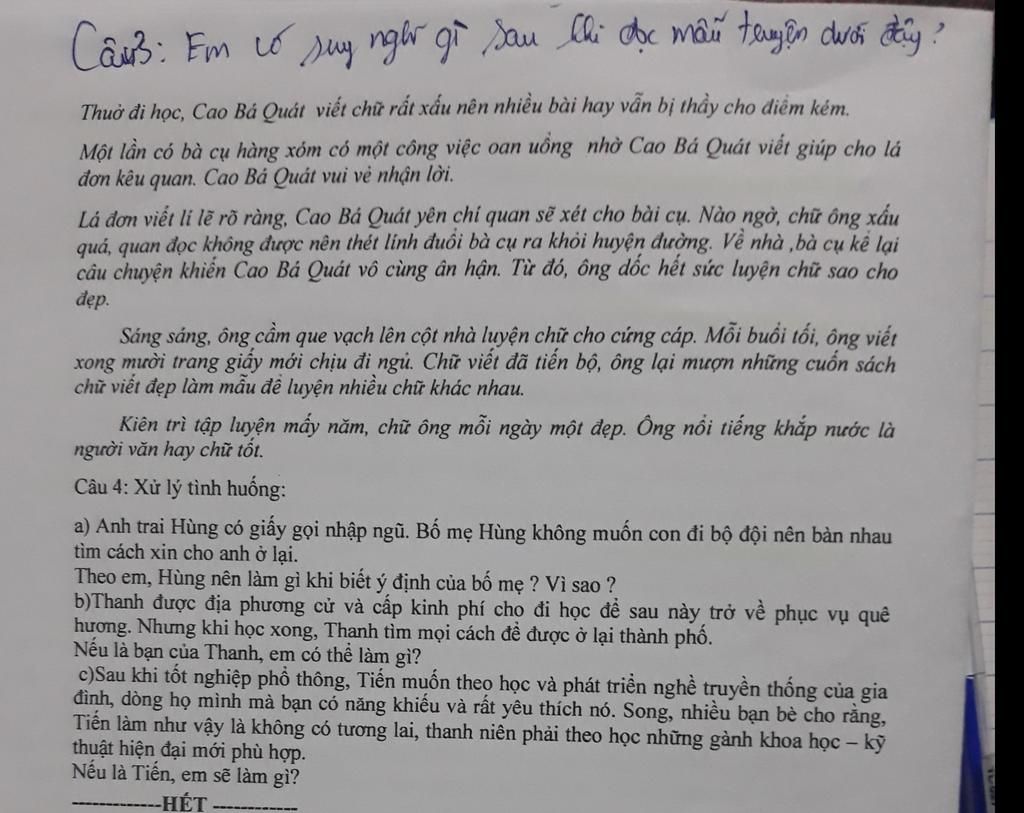 Câu3: Em có suy nghĩ gì sau khi đọc mẫu truyện dưới đây?
Thuở đi học, Cao Bá Quát viết chữ rất xấu nên nhiều bài hay vẫn bị thầy cho điểm kém.
Một lần có bà cụ hàng xóm có một công việc oan uổng nhờ Cao Bá Quát viết giúp cho lá
đơn kêu quan. Cao Bá Quát vui vẻ nhận lời.
Lá đơn viết lí lẽ rõ ràng, Cao Bá Quát yên chí quan sẽ xét cho bài cụ. Nào ngờ, chữ ông xấu
quá, quan đọc không được nên thét lính đuổi bà cụ ra khỏi huyện đường. Về nhà ,bà cụ kể lại
câu chuyện khiến Cao Bá Quát vô cùng ân hận. Từ đó, ông dốc hết sức luyện chữ sao cho
đẹp.
Sáng sáng, ông cầm que vạch lên cột nhà luyện chữ cho cứng cáp. Mỗi buổi tối, ông viết
xong mười trang giấy mới chịu đi ngủ. Chữ viết đã tiến bộ, ông lại mượn những cuốn sách
chữ viết đẹp làm mẫu để luyện nhiều chữ khác nhau.
Kiên trì tập luyện mấy năm, chữ ông mỗi ngày một đẹp. Ông nổi tiếng khắp nước là
người văn hay chữ tốt.
Câu 4: Xử lý tình huống:
a) Anh trai Hùng có giấy gọi nhập ngũ. Bố mẹ Hùng không muốn con đi bộ đội nên bàn nhau
tìm cách xin cho anh ở lại.
Theo em, Hùng nên làm gì khi biết ý định của bố mẹ ? Vì sao ?
b)Thanh được địa phương cử và cấp kinh phí cho đi học để sau này trở về phục vụ quê
hương. Nhưng khi học xong, Thanh tìm mọi cách để được ở lại thành phố.
Nếu là bạn của Thanh, em có thể làm gì?
c)Sau khi tốt nghiệp phổ thông, Tiến muốn theo học và phát triển nghề truyền thống của gia
đình, dòng họ mình mà bạn có năng khiếu và rất yêu thích nó. Song, nhiều bạn bè cho rằng,
Tiến làm như vậy là không có tương lai, thanh niên phải theo học những gành khoa học – kỹ
thuật hiện đại mới phù hợp.
Nếu là Tiến, em sẽ làm gì?
-------------HẾT ------------